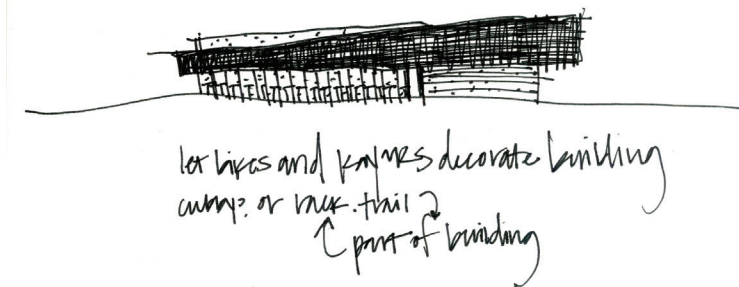 let bikes and kayaks decorate building
cubby? or rack. trail
part of building